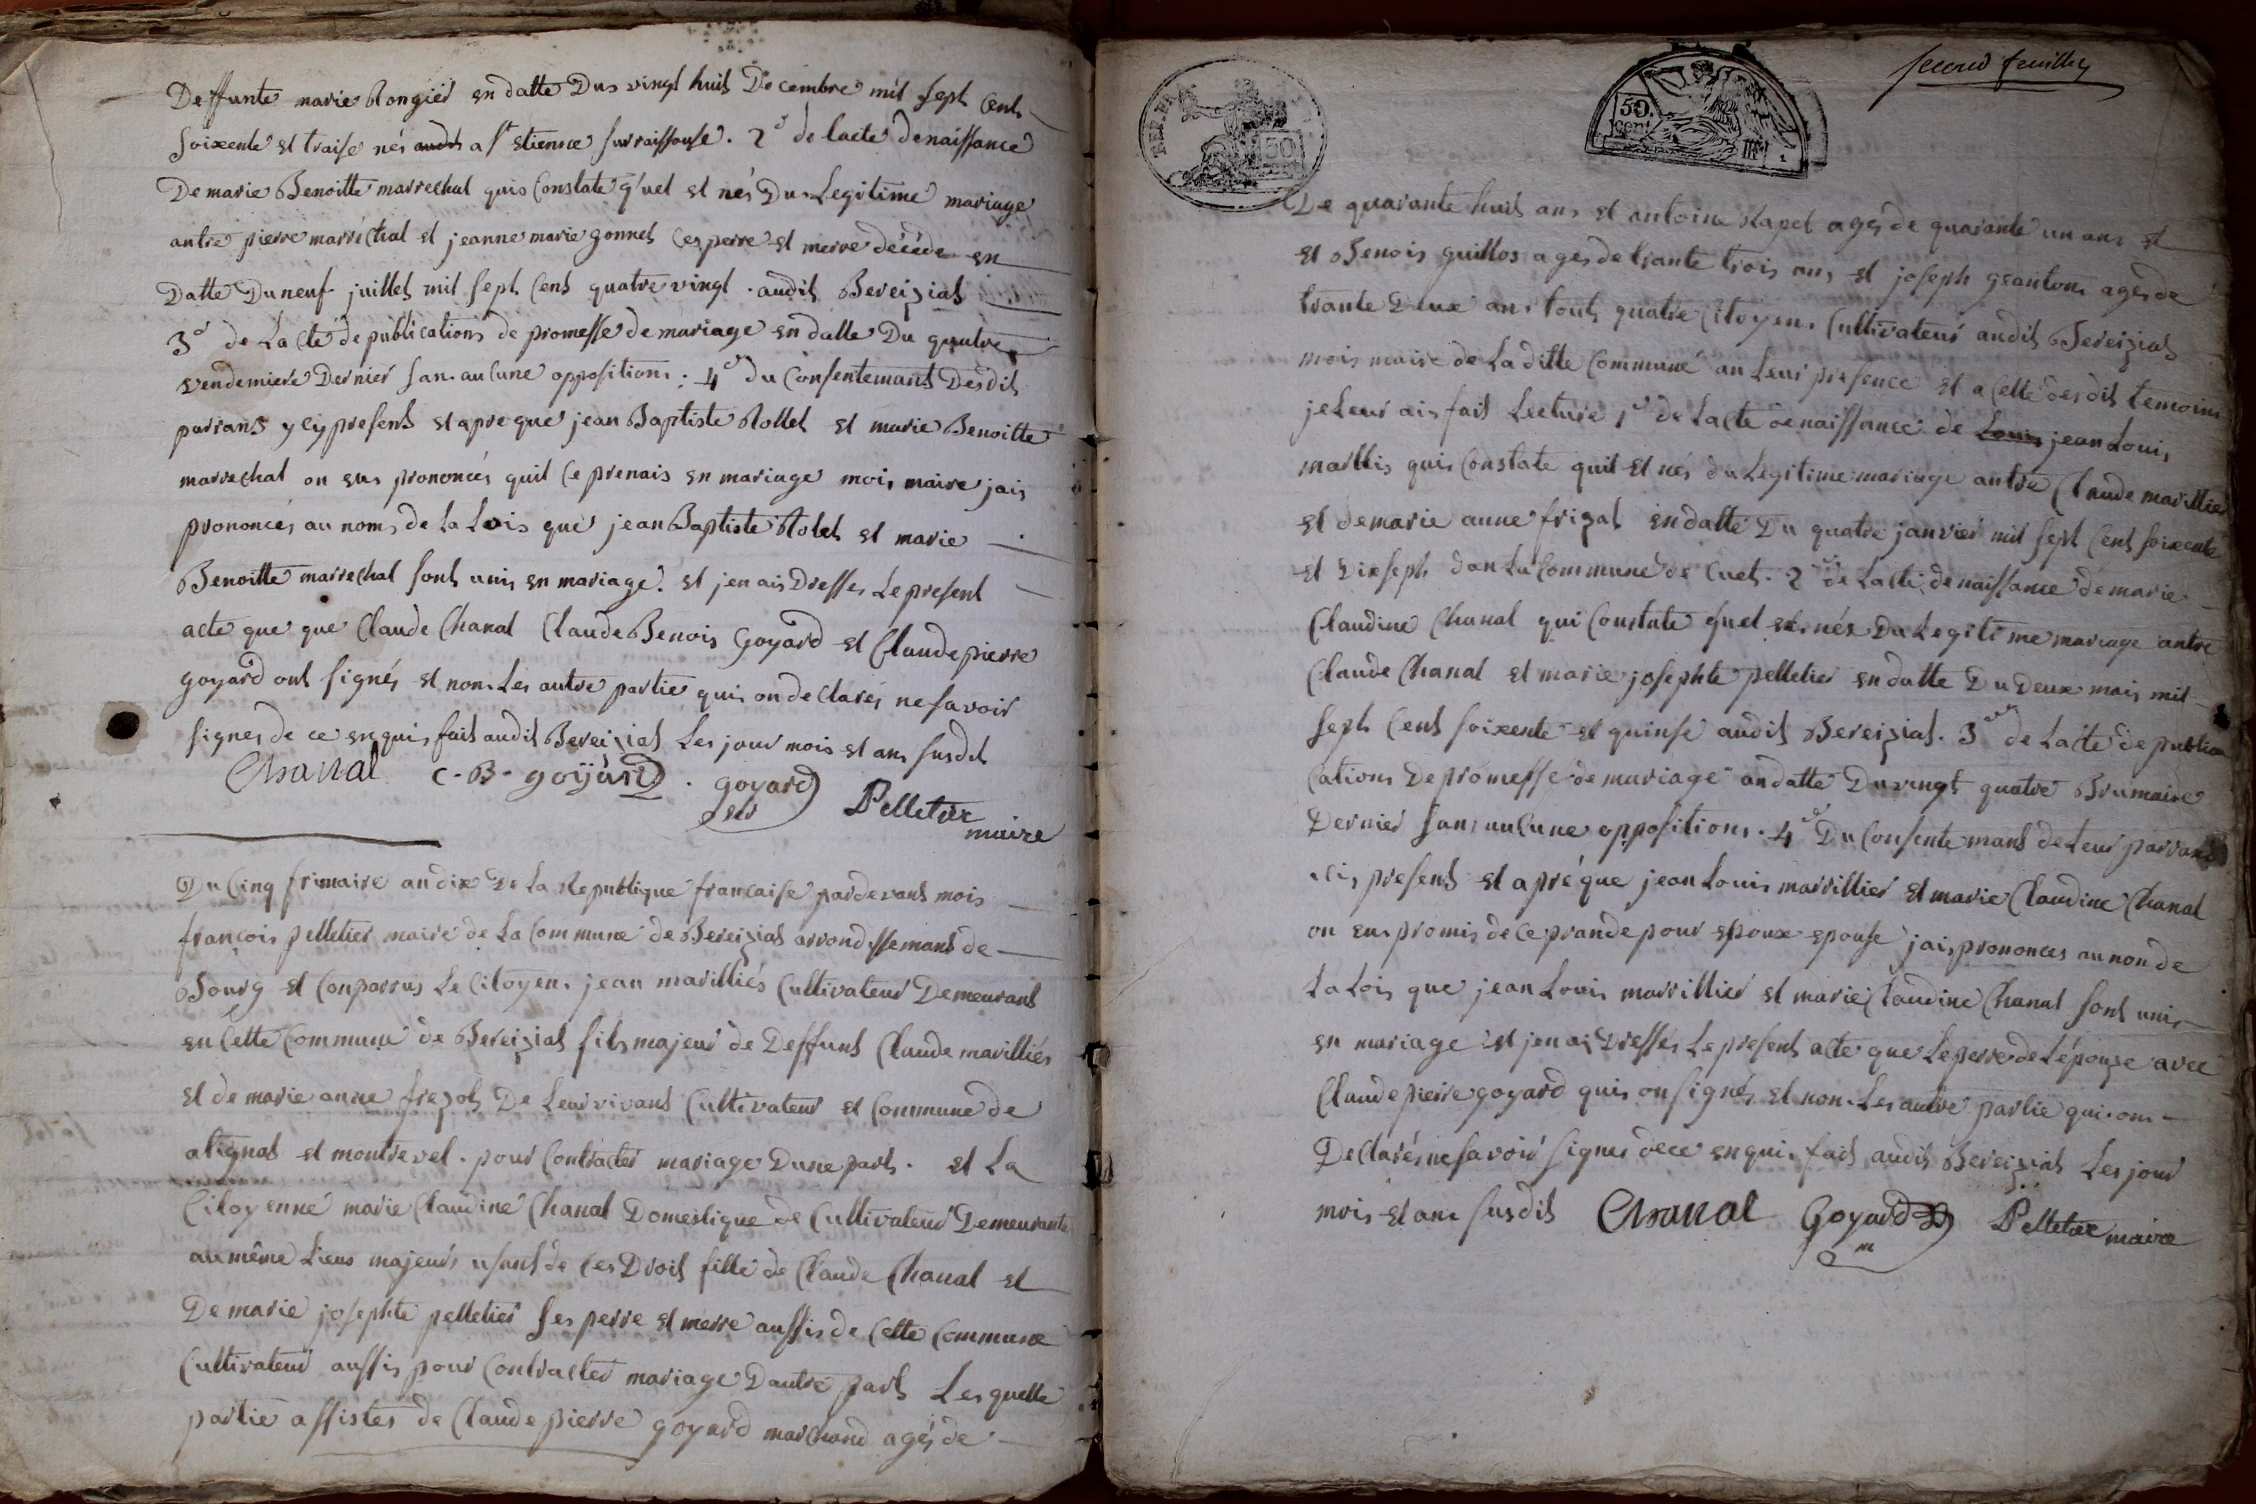 Deffunte marie Rongier en datte Dus vingt huit Decembre mil sept Cent
soixente et traise nés a St etienne surraissouse. 2e de lacte de naissance
De marie Benoitte marrechal quis Constate q'uel et nés Du Legitime mariage
antre pierre marrechal et jeanne marie gonnet Ces perre et merre décéde en
Datte Du neuf juillet mil sept Cent quatre vingt. audit Bereiziat
3e de Lacte de publications de promesse de mariage en datte Du quatre
vendemiere Dernier sans aucune opposition : 4e du Consentemant Desdit
parrans y Cy present et apre que jean Baptiste Rollet et marie Benoitte
marrechal on eus prononcés quil Ce prenais en mariage mois maire jais
prononcés au noms de La Lois que jean Baptiste Rolet et marie
Benoitte marrechal sont unis en mariage. et jen ais Dresses Le present
acte que que Claude Chanal Claude Benois Goyard et Claude pierre
goyard ont signés et non Les autre partie quis on declarés ne savoir
signes de ce enquis fait audit Bereiziat Les jour mois et ans susdit
Chanal C-B-goÿard. goyard Pelletier
maire
Du Cinq frimaire an dix De La Republique francaise pardevant mois
françois pelletier maire de La Commune de Bereiziat arrondissemant de
Bourg et Conparrus Le Citoyen jean marilliés Cultivateur Demeurant
en Cette Commune de Bereiziat fils majeur de Deffunt Claude marilliés
et de marie anne frezot De Leur vivant Cultivateur et Commune de
atignat et montrevel. pour Contracter mariage Dune part. et La
Citoyenne marie Claudine Chanal Domestique de Cultivateur Demeurante
au même Lieus majeur usant de Ces Droit fille de Claude Chanal et
De marie josephte pelletier Ses perre et merre aussis de Cette Commune
Cultivateur aussis pour Contracter mariage Dautre part Lesquelle
partie assistes de Claude pierre goyard marchand agés de
second feuillet
REP. FRA
50
50. cent.
De quarante huit ans et antoine Rapet agés de quarante un ans et
et Benois guillot ages de trante trois ans et joseph geantons agés de
trante Deux ans tout quatre Citoyens Cultivateur audit Bereiziat
mois maire de La ditte Commune an Leur presence et a Cette desdit temoins
je Leur ais fait Lecture 1e de Lacte de naissance de Louis jean Louis
marillis quis Constate quil et nés du Legitime mariage antre Claude marillier
et de marie anne frizat en datte Du quatre janvier mil sept Cent soixente
et Dixsept dans La Commune de Cuet. 2e de Lacte de naissance de marie
Claudine Chanal qui Constate quel et nés Du Legitime mariage antre
Claude Chanal et marie josephte pelletier en datte Du Deux mais mil
sept Cent soixente et quinse audit Bereiziat. 3e de Lacte de publica
Cations De promesse de mariage an datte Du vingt quatre Brumaire
Dernier sans auCune opposition. 4e Du Consentemant de Leur parrans
ici present et apré que jean Louis marrillier et marie Claudine Chanal
on eus promis de Ce prande pour espoux espouse jais prononces au non de
La Lois que jean Louis marrillier et marie Claudine Chanal sont unis
en mariage et jen ais Dressés Le present acte que Le perre de Lépouze avec
Claude pierre goyard quis on signés et non Les autre partie qui on
Declarés ne savoir signes de ce enquis fait audit Bereiziat Les jour
mois et ans susdit Chanal Goyard Pelletier maire